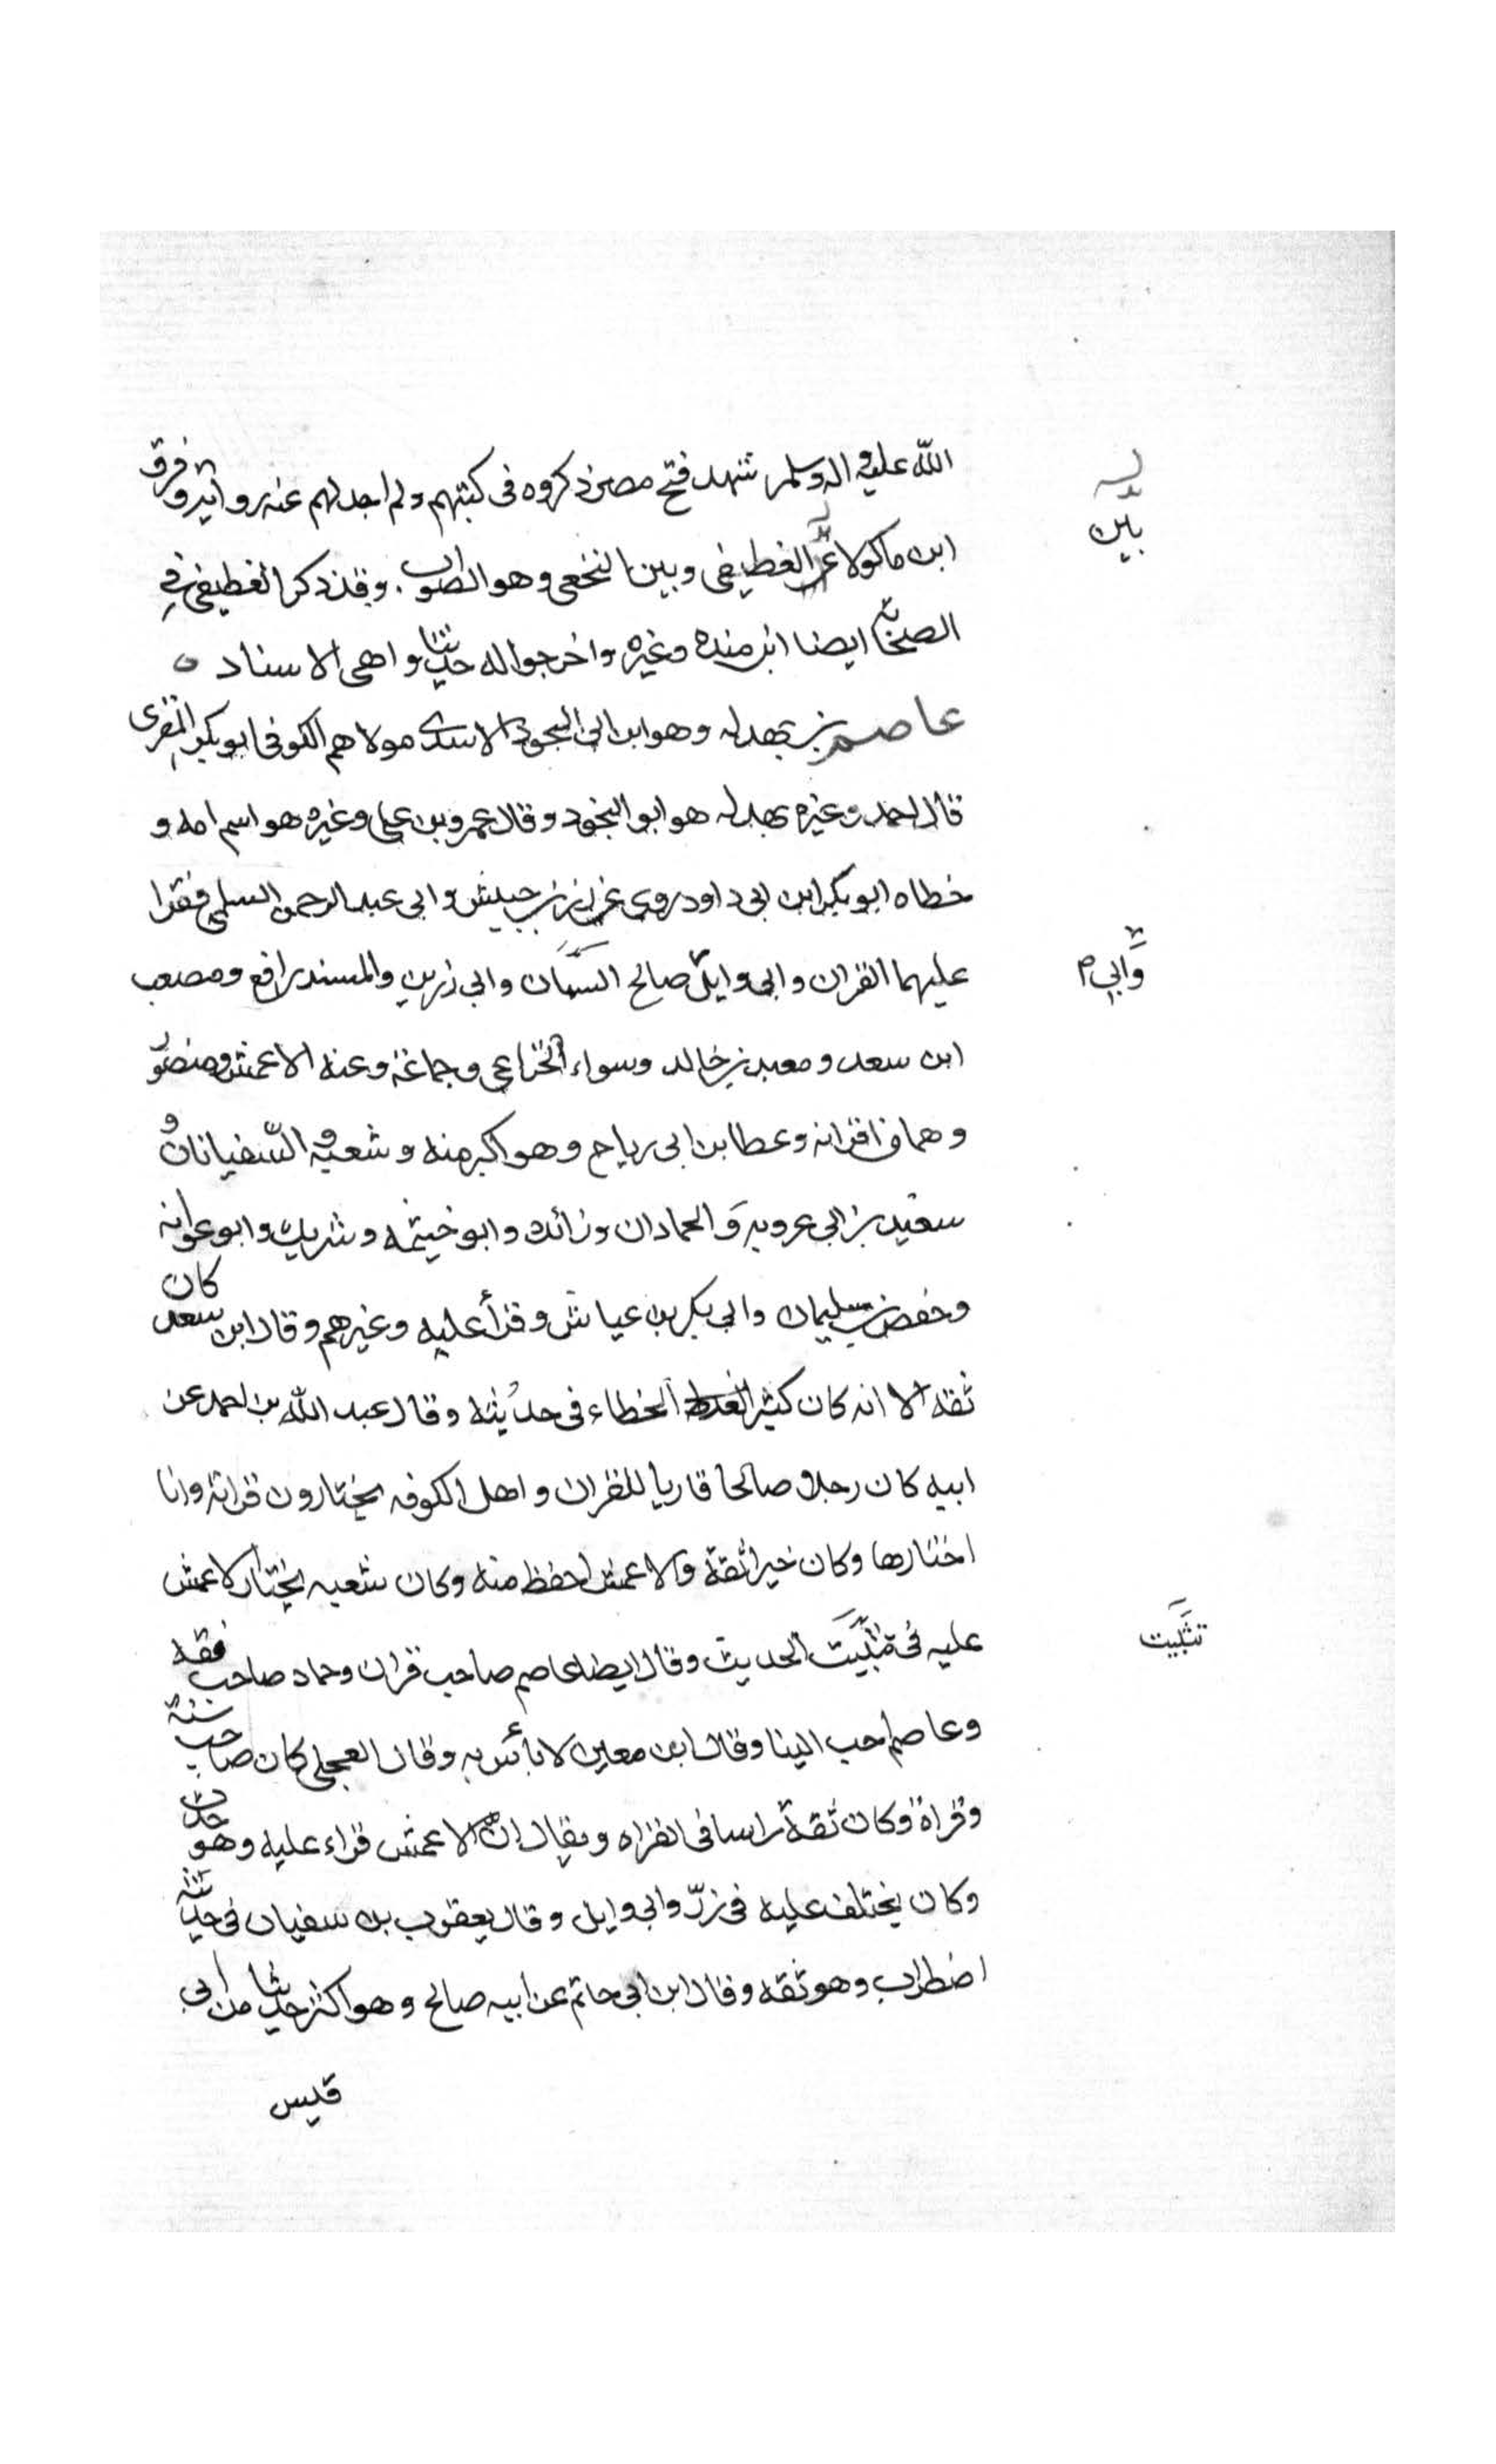 الله عليه واله وسلم شهد فتح مصر ذكروه فى كتبهم ولم اجد لهم عنه رواية وفرق
بين
ابن ماكولا الغطيفى وبين النخعى وهو الصواب . وقد ذكر الغطيفى فى
الصحابة ايضا ابن منده وغيره واخرجوا له حديثا واهى الاسناد ه
عاصم بن بهدله وهو ابن ابى النجود الاسدى مولاهم الكوفى ابو بكر المقرى
قال احمد وغيره بهدله هو ابو النجود وقال عمرو بن على وغيره هو اسم امه و
خطاه ابو بكر ابن ابى داود روى عن زر بن حبيش وابى عبد الرحمن السلمى فقرا
وابى
عليهما القران وابى وايل صالح السمان وابى رزين والمسند رافع ومصعب
ابن سعد و معبد بن خالد وسواء الخزاعى وجماعة وعنه الاعمش ومنصور
وهما من اقرانه وعطا بن ابى رباح وهو اكبر منه وشعبه والسفيانان و
سعيد بن ابى عروبه والحمادان وزائده وابو خيثمه وشريك وابو عوانه
وحفص بن سليمان وابى بكر بن عياش وقرأ عليه وغيرهم وقال ابن سعد كان
ثقه الا انه كان كثير الخطاء فى حديثه وقال عبد الله بن احمد عن
ابيه كان رجلا صالحا قاريا للقران واهل الكوفه يختارون قراته وانا
اختارها وكان خيرا ثقة والاعمش احفظ منه وكان شعبه يختار الاعمش
تثبيت
عليه فى تثبيت الحديث وقال ايضا عاصم صاحب قران وحماد صاحب فقه
وعاصم احب الينا وقال ابن معين لا بأس به وقال العجلى كان صاحب سنة
وقراة وكان ثقة راسا فى القراه ويقال ان الاعمش قراء عليه وهو حدث
وكان يختلف عليه فى زرّ وابى وايل وقال يعقوب بن سفيان فى حديثه
اضطراب وهو ثقه وقال ابن ابى حاتم عن ابيه صالح وهو اكثر حديثا من ابى
قيس